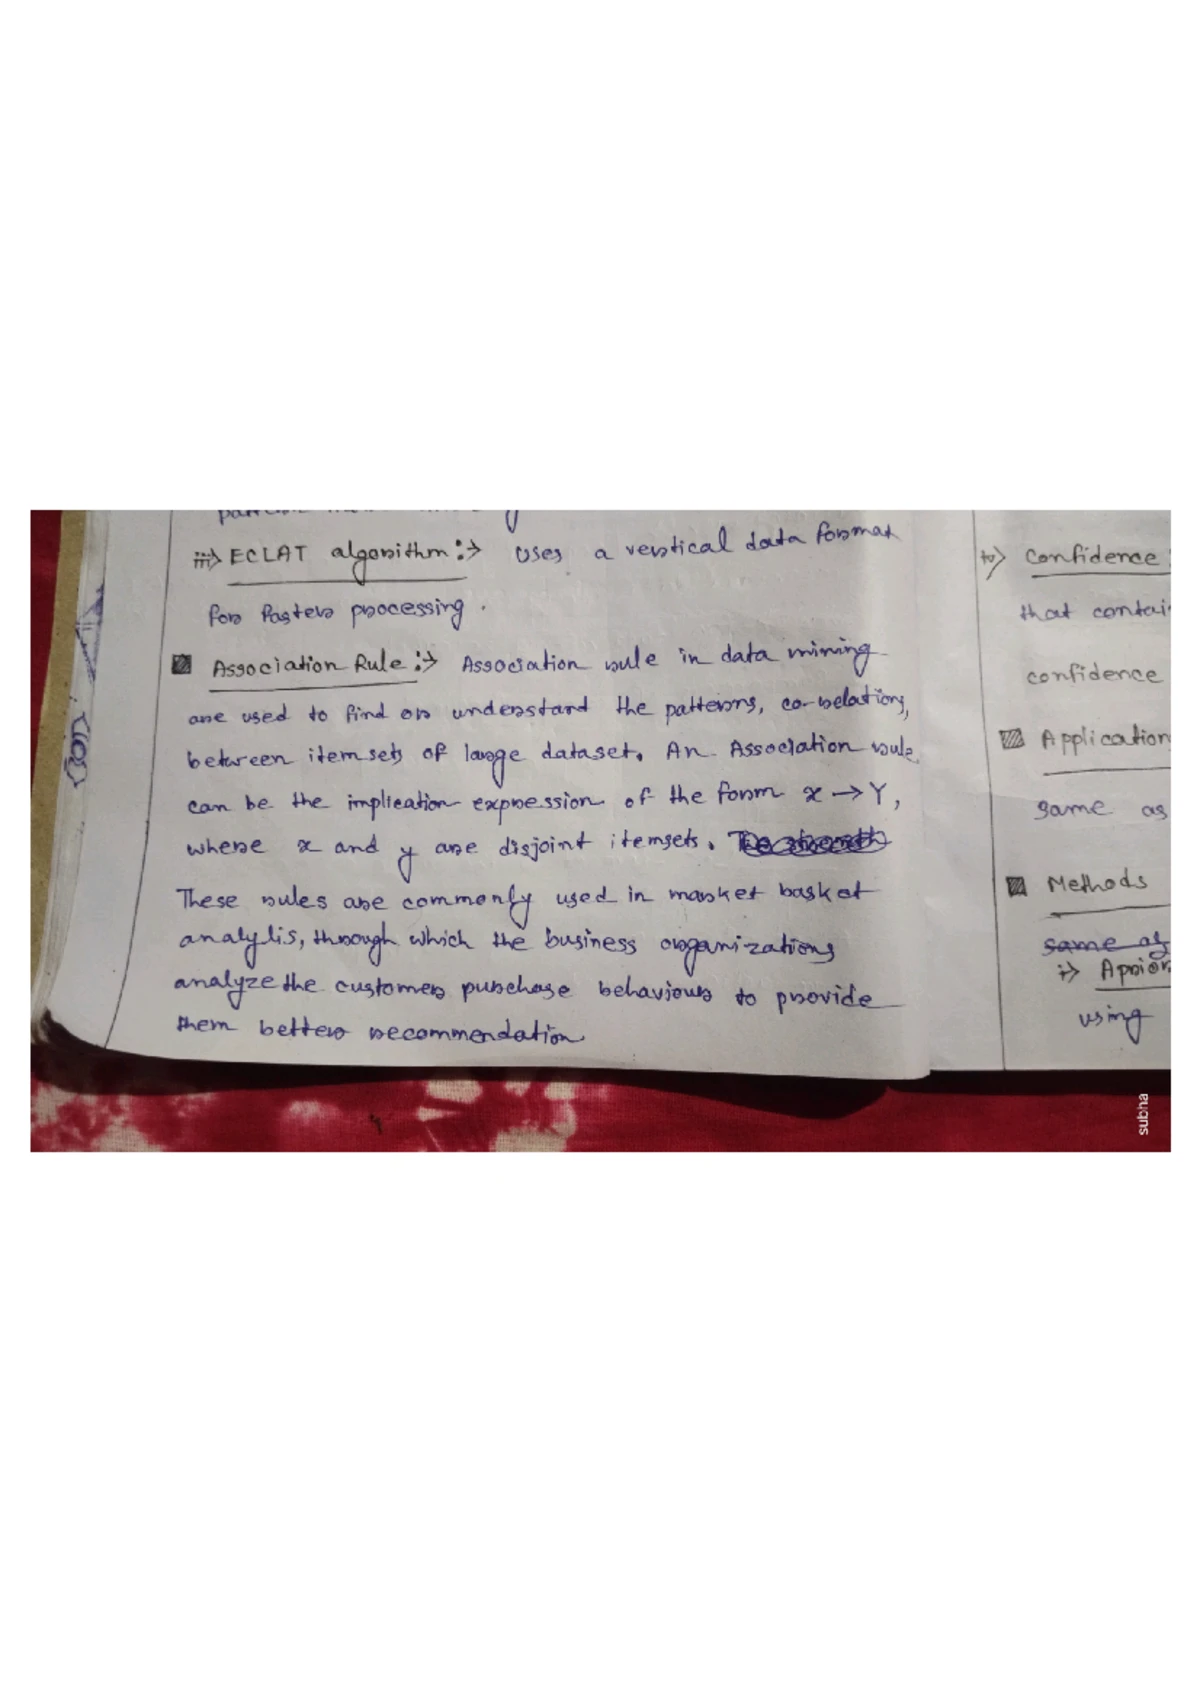 iii) ECLAT algorithm :→ Uses a vertical data format
for faster processing.
Association Rule :→ Association rule in data mining
are used to find or understand the patterns, co-relations,
between itemsets of large dataset. An Association rule
can be the implication expression of the form x → Y,
where x and y are disjoint itemsets.
These rules are commonly used in market basket
analylis, through which the business organizations
analyze the customers purchase behaviour to provide
them better recommendation
iv) Confidence :
that contai
confidence
Application
same as
Methods
same as
i) Aprior
using
subha